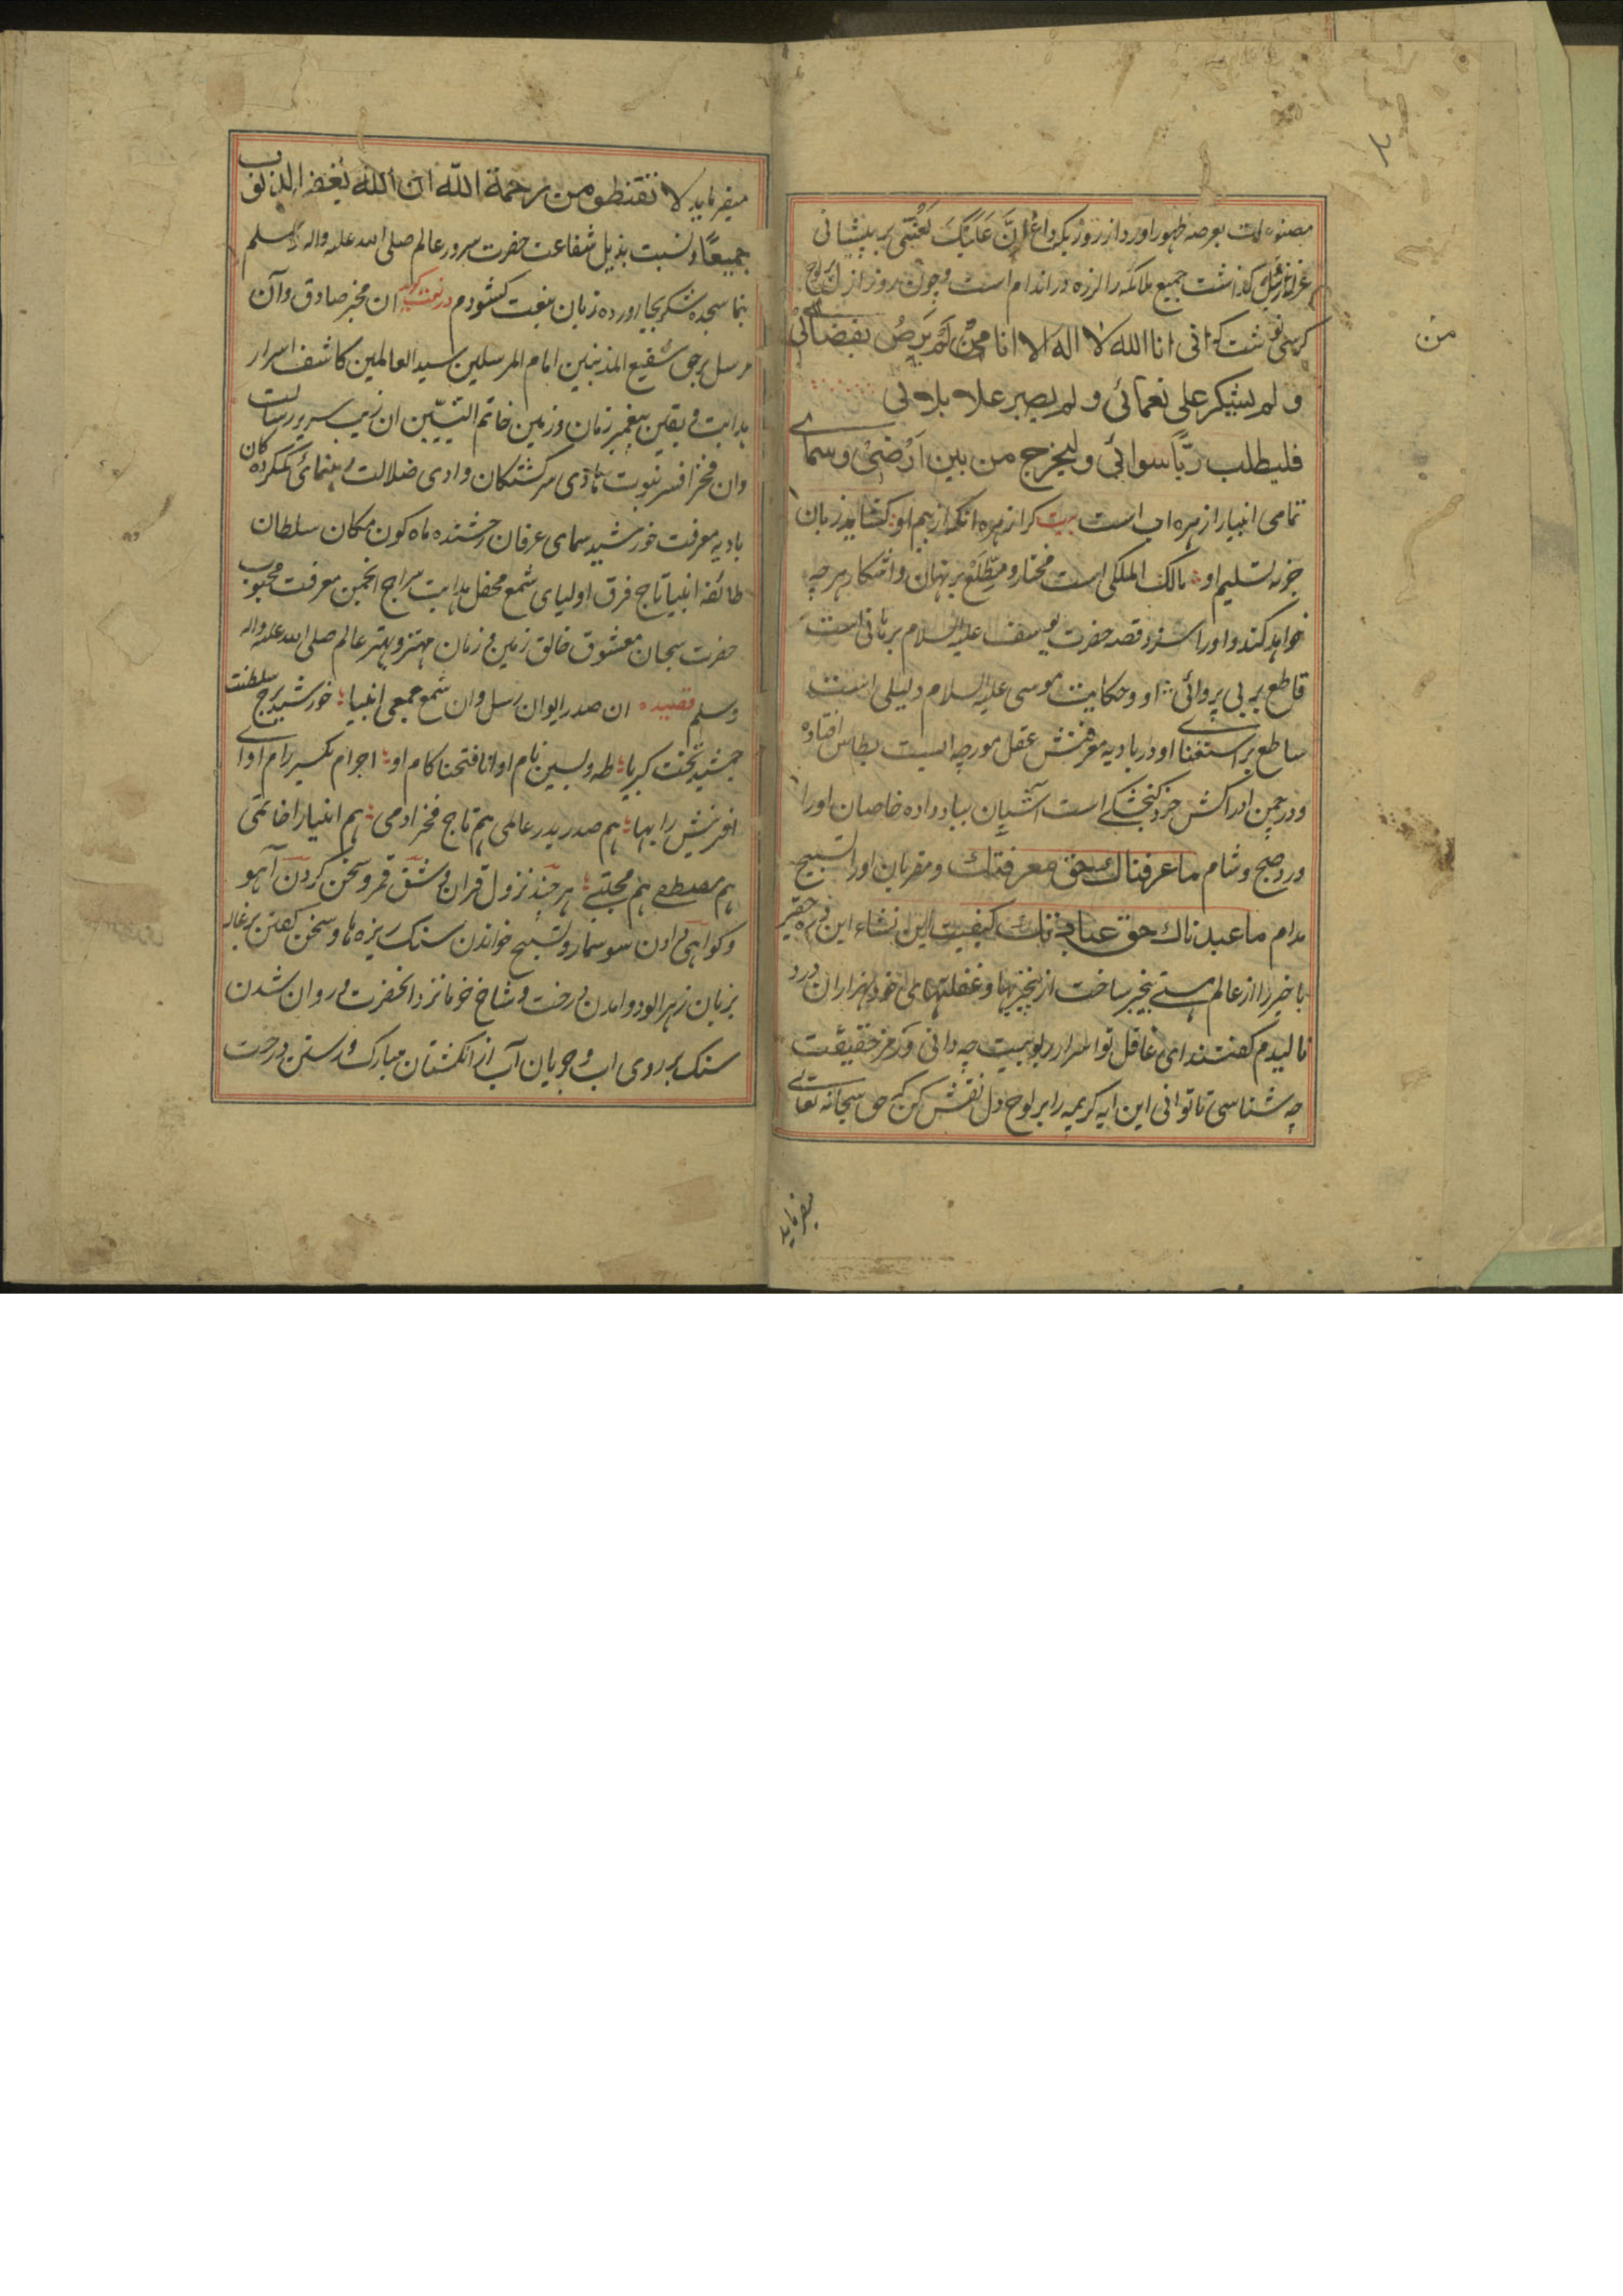 مصنوعات بعرصه ظهور آورد از روزیکه داغ اِنَّ عَلَیْکَ لَعْنَتِی بر پیشانی
عزازیل گذاشت جمیع ملائکه را لرزه در اندام است و چون روز ازل بر لوح
کرسی نوشت که انی انا الله لا اله الا انا من لَم یَرضُ بقضائی
و لم یشکر علی نعمائی و لم یصبر علی بلائی
فلیطلب ربًّا سوائی ولیخرج من بین اَرْضِیْ و سمائی
تمامی انبیا را زهره آب است بیت کرا زهره آنکه از بیم او کشاید زبان
جز به تسلیم او مالک الملکی است مختار و مطّلع بر نهان و آشکار هرچه
خواهد کند و او را سزد قصه حضرت یوسف علیه السلام برهانی است
قاطع بر بی پروائی او و حکایت موسی علیه السلام دلیلی است
ساطع بر استغنای او در بادیه معرفتش عقل مورچه ایست بطاس افتاده
و در چمن ادراکش خرد کنجشکی است آشیان بباد داده خاصان او را
ورد صبح و شام ما عرفناک حق معرفتک و مقربان او را تسبیح
مدام ما عبدناک حق عبادتک کیفیت این نشاء این ذره حقیر
با خبر را از عالم هستی بیخبر ساخت از بیخبریها و غفلتهای خود هزاران درد
نالیدم کفتند ای غافل تو اسرار ربوبیت چه دانی و رمز حقیقت
چه شناسی تا توانی این آیه کریمه را بر لوح دل نقش کن که حق سبحانه تعالی
میفرماید
من
میفرماید لا تقنطو من رحمة الله ان الله یغفر الذنوب
جمیعًا و نسبت بذیل شفاعت حضرت سرور عالم صلی الله علیه واله وسلم
بنما سجده شکر بجا آورده زبان بنعت کشودم در نعت کوید ان مخبر صادق وآن
مرسل برحق شفیع المذنبین امام المرسلین سید العالمین کاشف اسرار
هدایت و یقین پیغمبر زمان و زمین خاتم النبیّین ان زیب سریر رسالت
وان فخر افسر نبوت هادی سرکشتکان وادی ضلالت رهنمائی کمکرده کان
بادیه معرفت خورشید سمای عرفان رخشنده ماه کون مکان سلطان
طائفه انبیا تاج فرق اولیای شمع محفل هدایت سراج انجمن معرفت محبوب
حضرت سبحان معشوق خالق زمین و زمان مهتر و بهتر عالم صلی الله علیه واله
وسلم قصیده ان صدر ایوان رسل وان شمع جمع انبیا خورشید برج سلطنت
جمشید تخت کبریا طه و یسین نام او انا فتحنا کام او اجرام یکسر رام او ای
افرینش را بها هم صدر بدر عالمی هم تاج فخر ادمی هم انبیا را خاتمی
هم مصطفے هم مجتبے هر چند نزول قران و شق قمر و سخن کردن آهو
و کواهی دادن سوسمار و تسبیح خواندن سنک ریزه ها و سخن کفتن بزغاله
بریان زهر الود و امدن درخت و شاخ خرما نزد انحضرت و روان شدن
سنک بر روی اب و جویان آب از انکشتان مبارک و رستن درخت